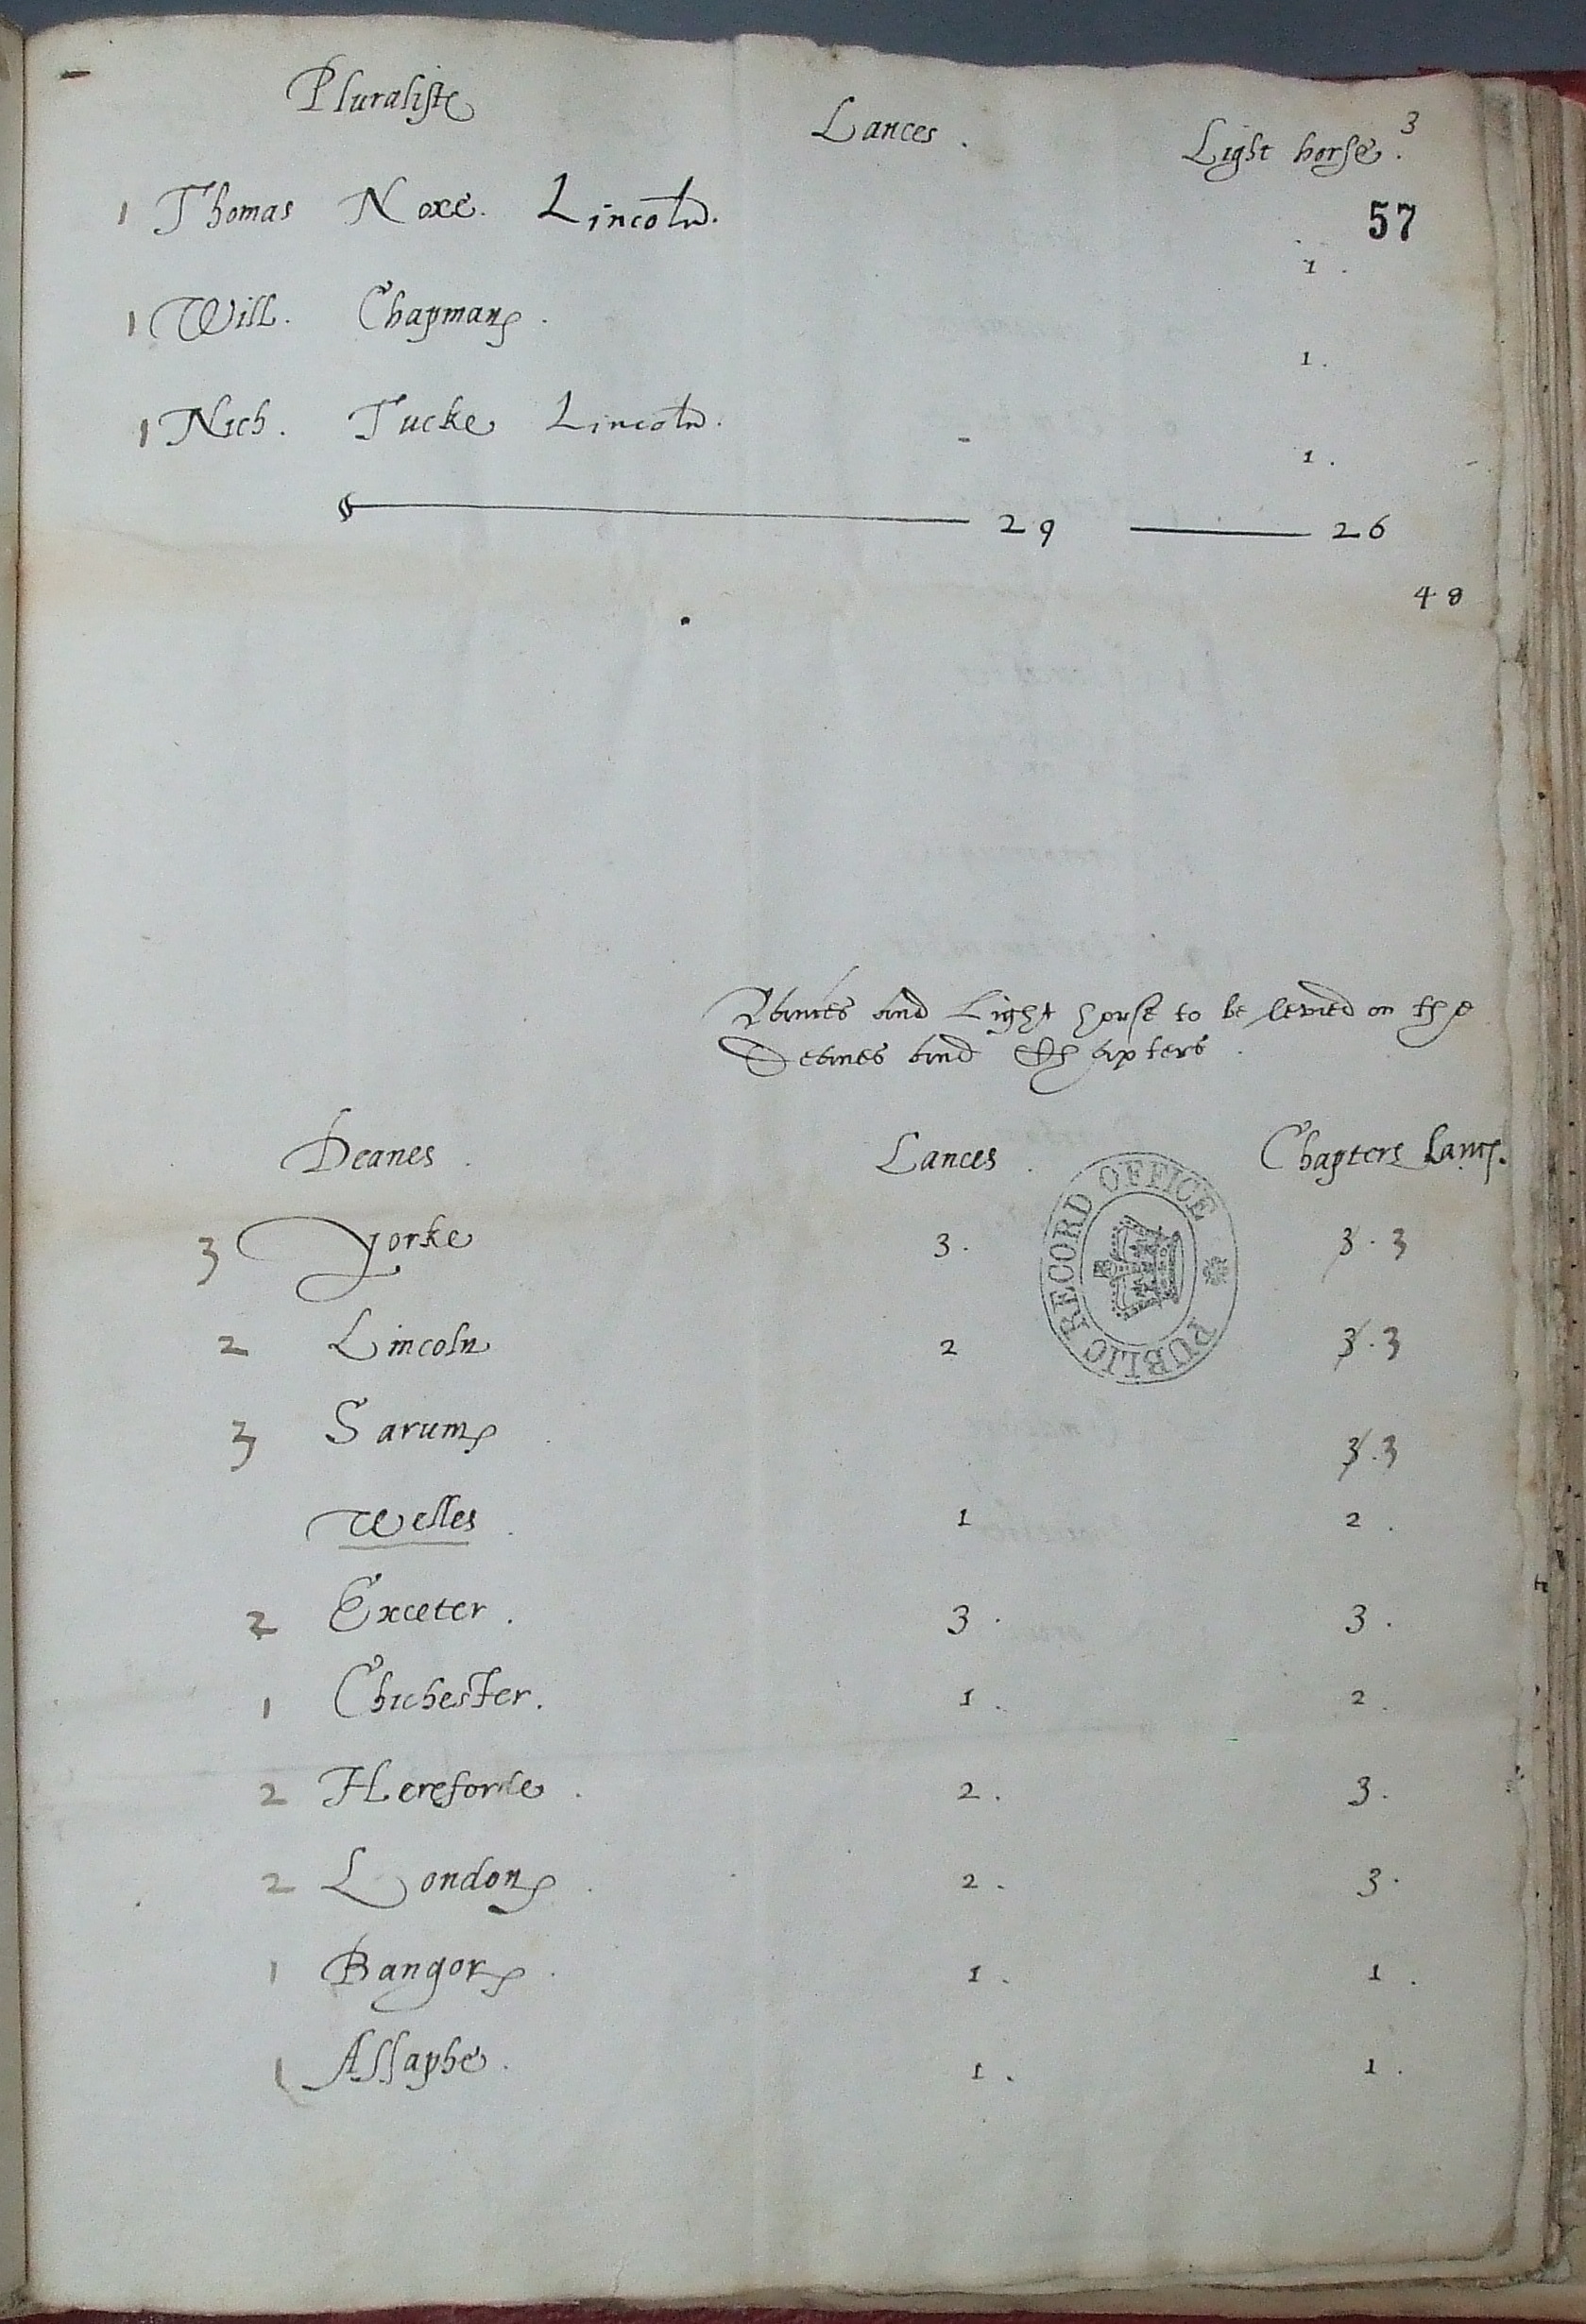 Pluraliste Lances . Light horse . 3
1 Thomas Noxe. Lincoln. 57
1 .
1 Will. Chapman .
1 .
1 Nich. Tucke Lincoln. -
1 .
29 26
48
Launces and Light horse to be levied on the
Deanes and Chapters .
Deanes . Lances . Chapters Lanc.
3 Yorke 3 . 3 . 3
2 Lincoln 2 3 . 3
3 Sarum . 3 . 3
Welles . 1 2 .
2 Exceter . 3 . 3 .
1 Chichester . 1 . 2 .
2 Hereforde . 2 . 3 .
2 London . 2 . 3 .
1 Bangor . 1 . 1 .
1 Assaphe . 1 . 1 .
PUBLIC RECORD OFFICE